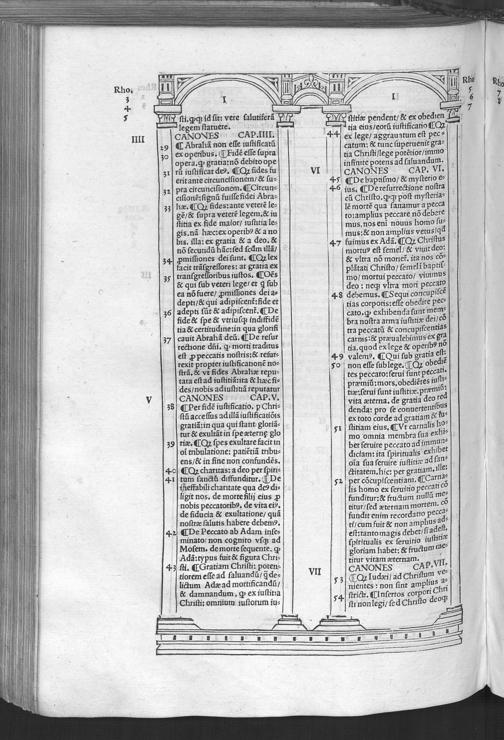 Rho.
3
4
5
I
sti. qcqd id sit: vere salutiferā
legem statuere.
IIII
CANONES CAP.IIII.
29 ¶ Abrahā non esse iustificatū
30 ex operibus. ¶ Fidē esse supra
opera. qͥ gratia: nō debito ope
31
prа circumcisionem. ¶ Circun-
cisionē: signū fuisse fidei Abra-
33 hæ. ¶ Qꝫ fides: ante veterē le-
gē/& supra veterē legem. & iu
stitia ex fide maior/ iustitia le-
gis. nā hæc: ex operibꝰ & a no
bis. illa: ex gratia & a deo, &
nō secundū hāc: sed scdm illā/
34 ꝓmissiones dei sunt. ¶ Qꝫ lex
facit trāsgressores: at gratia ex
35 transgressoribus iustos. ¶ Oēs
& qui sub veteri lege/ et q̄ sub
ea nō fuere/ ꝓmissiones dei a-
depti/ & qui adipiscent̄: fide et
36 adepti sūt & adipiscent̄. ¶ De
fide & spe & vtriusqꝫ indefide
tia & certitudine: in qua glorifi
37 cauit Abrahā deū. ¶ De resur
rectione dn̄i. q morti traditus
est ꝓ peccatis nostris: & resur-
rexit propter iustificationē no-
strā. & vt fides Abrahæ repu-
tata est ad iustitiā: ita & hæc fi-
des/ nobis ad iustitiā reputatur
V
CANONES CAP.V.
38 ¶ Per fidē iustificatio. ꝑ Chri-
stū accessus ad illā iustificatiōis
gratiā: in qua qui stant gloriā-
tur & exultāt in spe æternę glo
39 riæ. ¶ Qꝫ spes exultare facit in
oī tribulatione: patiētiā tribu-
ens/& in fine non confundēs.
40 ¶ Qꝫ charitas: a deo per spiri-
41 tum sanctū diffunditur. ¶ De
ineffabili charitate qua deꝰ di-
ligit nos. de morte filij eius ꝓ
nobis peccatoribꝰ. de vita eiꝰ.
de fiducia & exultatione/ quā
nostræ salutis habere debemꝰ.
42 ¶ De Peccato ab Adam. inse-
minato: non cognito vsqꝫ ad
Mosem. de morte sequente. qͥ
Adā: typus fuit & figura Chri-
43 sti. ¶ Gratiam Christi: poten-
tiorem esse ad saluandū/ q̄ de-
lictum Adæ ad mortificandū/
& damnandum. qͥ ex iustitia
Christi: omnium iustorum iu-
I
stitiæ pendent/ & ex obedien
tia eius/ eorū iustificatio ¶ Qꝫ
44 ex lege/ aggrauatum est pec-
catum: & tunc superuenit gra-
tia Christi/ lege potētior/ immo
infinite potens ad saluandum.
VI
CANONES CAP. VI.
45 ¶ De baptismo/ & mysterio e-
46 ius. ¶ De resurrectiōe nostra
cū Christo. qͥ post mysteria-
lē mortē qua sanamur a pecca
to: amplius peccare nō debere
mus. nos eni nouus homo su-
mus: & non amplius vetus/ qd
47 fuimus ex Adā. ¶ Qꝫ Christus
mortuꝰ est semel/ & viuit deo:
& vltra nō moriet̄. ita nos cō-
plātati Christo/ semel (baptis-
mo/ mortui peccato/ viuimus
deo: neqꝫ vltra mori peccato
48 debemus. ¶ Sequi concupiscē
tias corporis: esse obedire pec-
cato. qͥ exhibenda sunt mem-
bra nostra arma iustitiæ dei/ cō
tra peccatū & concupiscentias
carnis: & præualebimus ex gra
tia. quod ex lege & operibꝰ nō
49 valemꝰ. ¶ Qui sub gratia est:
50 non esse sub lege. ¶ Qꝫ obediē
tes peccato: serui sunt peccati.
præmiū: mors. obediētes iusti-
tiæ: serui sunt iustitiæ. præmiū:
vita æterna. de gratia deo red
denda: pro se conuertentibus
ex toto corde ad gratiam & iu-
51 stitiam eius. ¶ Vt carnalis ho
mo omnia membra sua exhi-
bet seruire peccato ad immun-
diciam: ita spiritualis exhibet
oīa sua seruire iustitiæ ad san-
ctitatem. hic: per gratiam. ille:
52 per cōcupiscentiam. ¶ Carna-
lis homo ex seruitio peccati cō
funditur: & fructum nullū me-
titur/ sed æternam mortem. cō
fundit enim recordatio pecca-
ti/ cum fuit & non amplius ad-
est: tanto magis debet/ si adest.
spiritualis ex seruitio iustitiæ
gloriam habet: & fructum me-
titur vitam æternam.
VII
CANONES CAP.VII.
53 ¶ Qꝫ Iudæi/ ad Christum ve-
nientes: non sint amplius a-
54 stricti. ¶ Insertos corpori Chri
sti: non legi/ sed Christo deoqꝫ
Rho
5
6
7
Rho
7
8